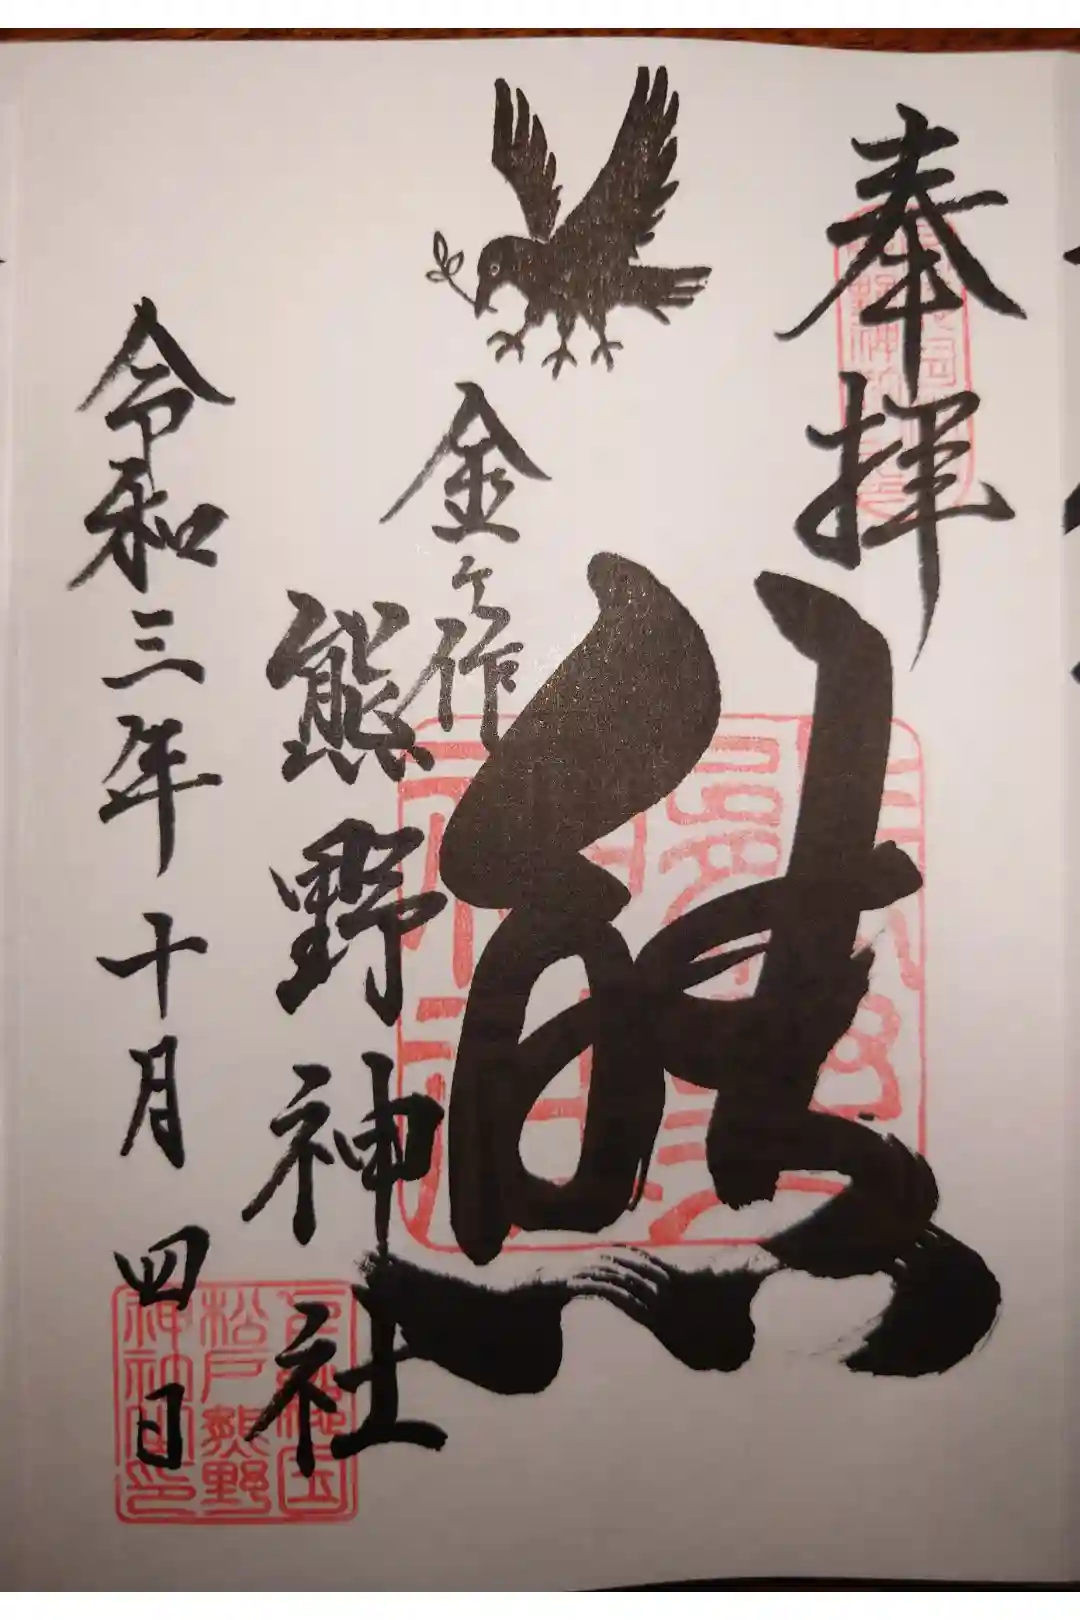 奉拝
熊
金ヶ作
熊野神社
令和三年十月四日
松戸熊野
神社